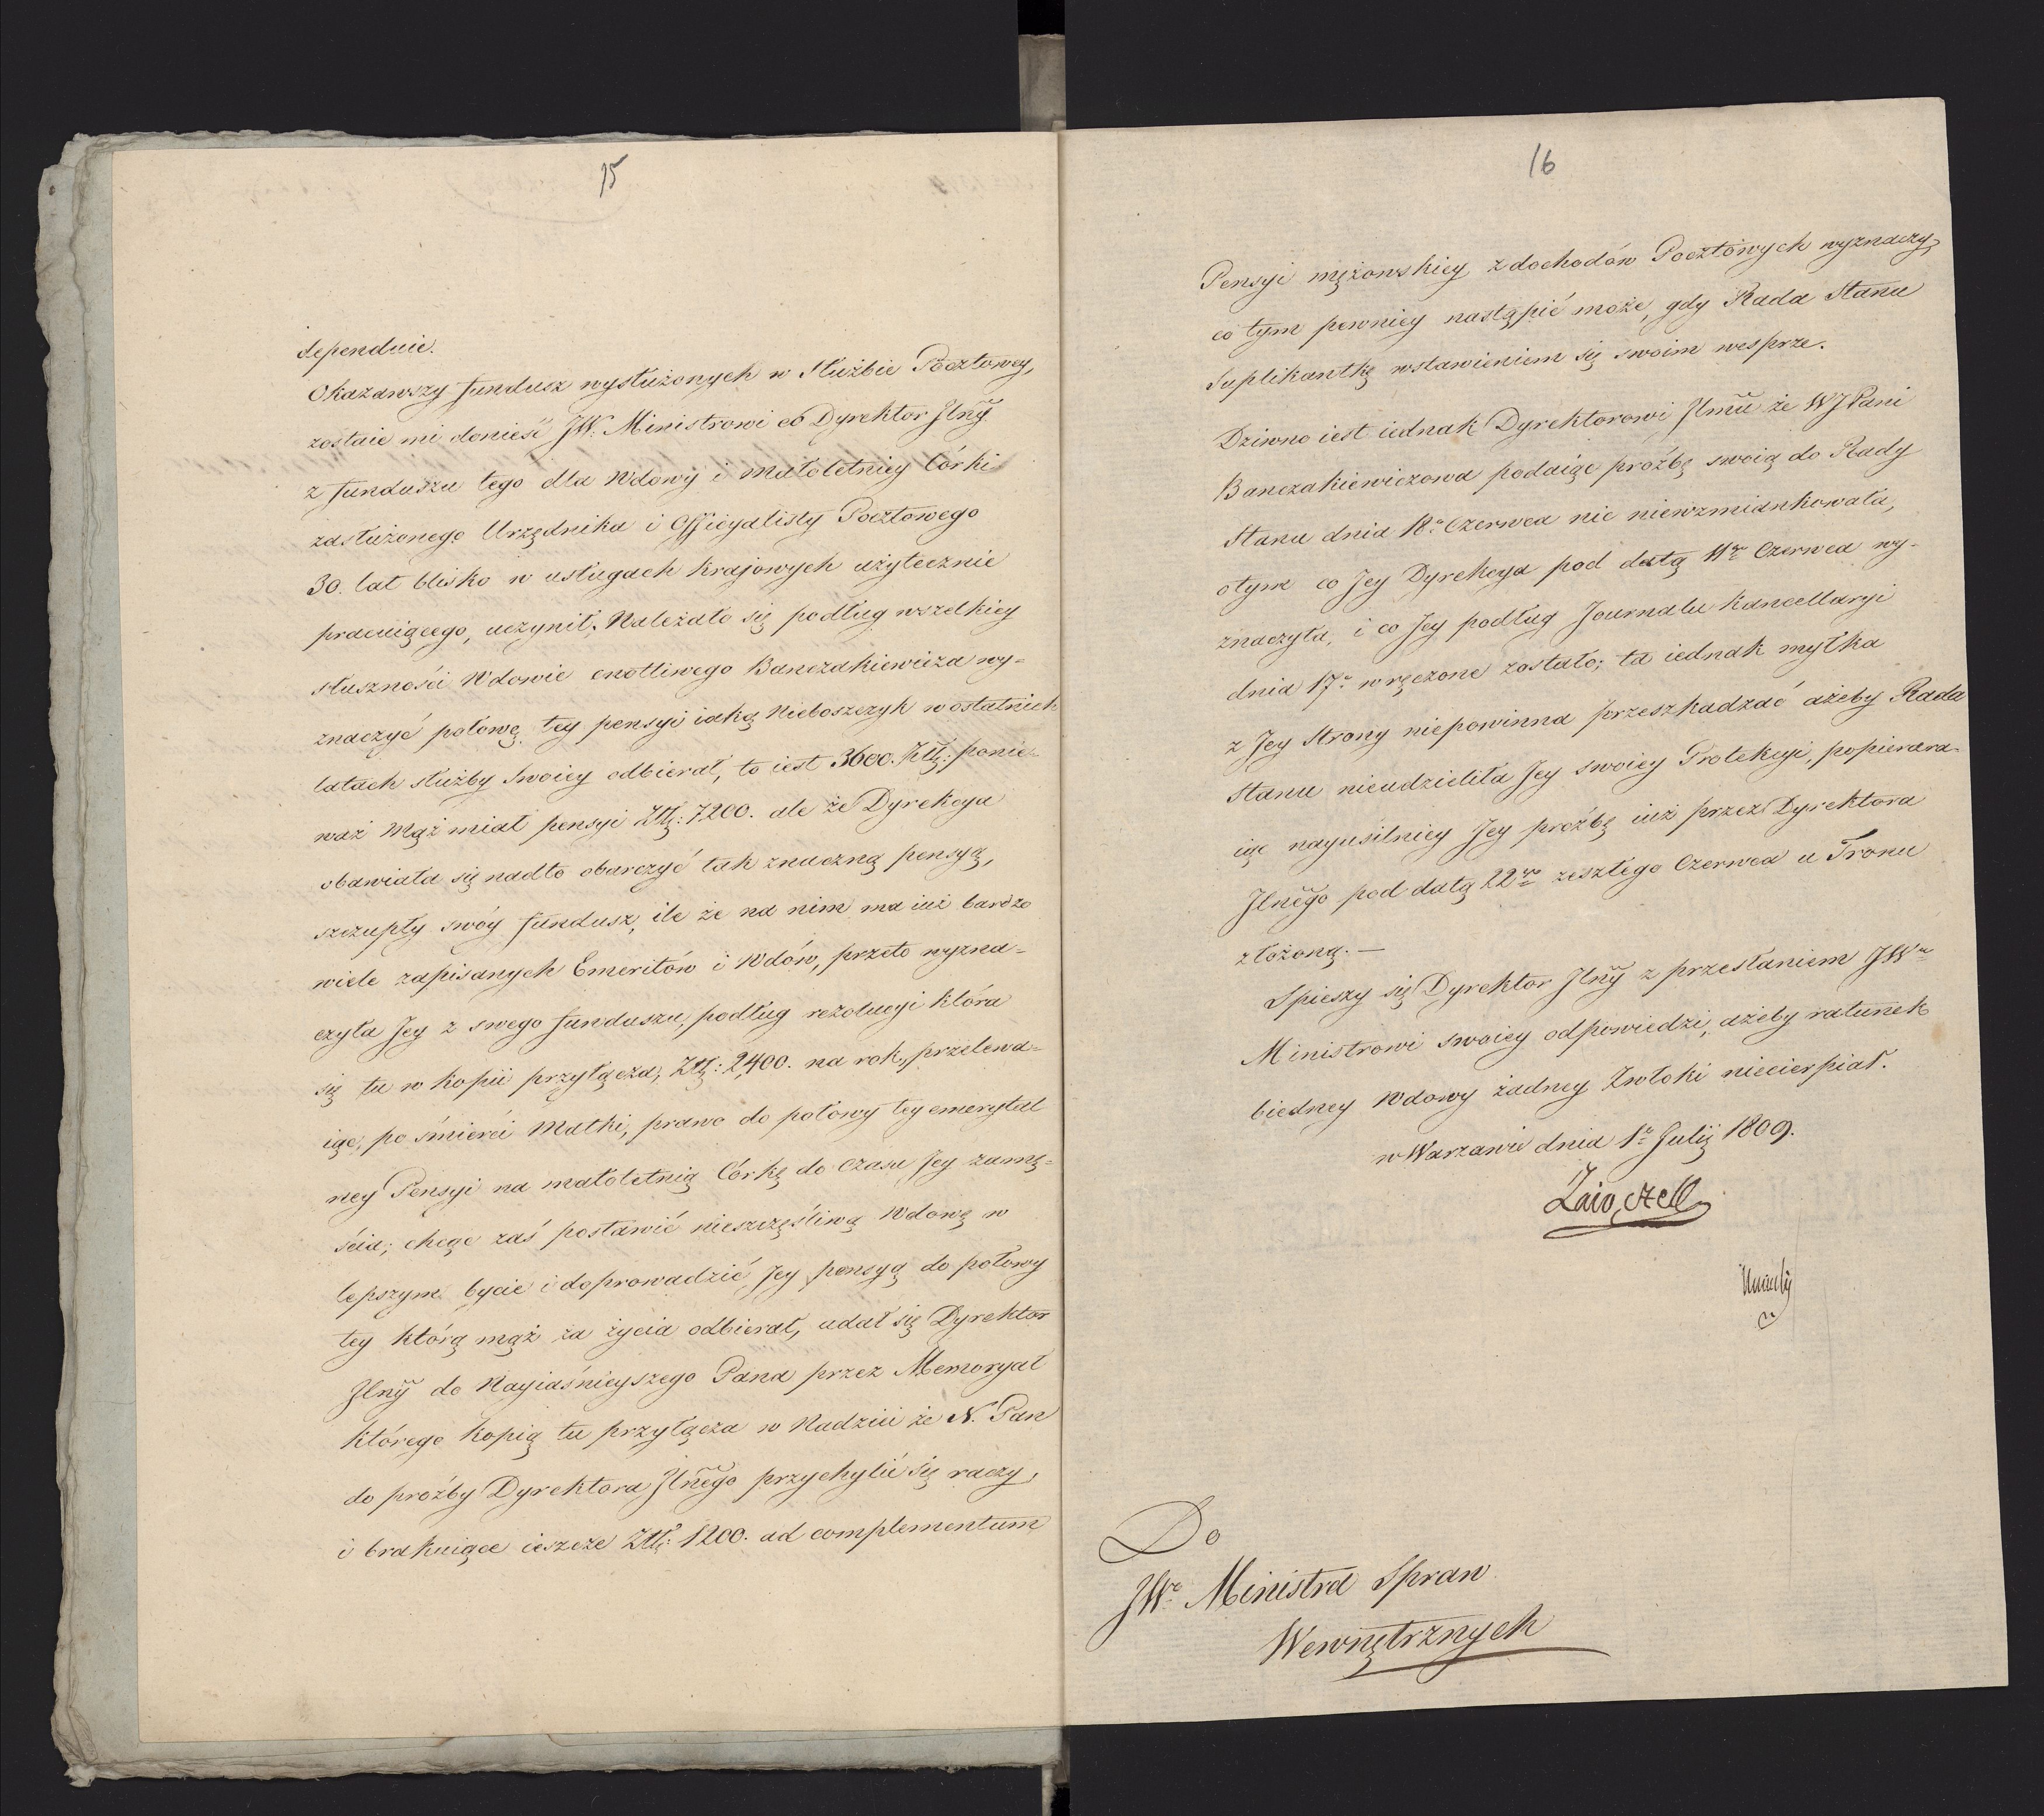 15
dependuie.
Okazawszy fundusz wysłużonych w Służbie Pocztowey,
zostaie mi donieść JW. Ministrowi co Dyrektor Jlny
z funduszu tego dla Wdowy i małoletniey Córki
zasłużonego Urzędnika i Officyalisty Pocztowego
30. lat blisko w usługach krajowych użytecznie
pracuiącego, uczynił. Należało się podług wszelkiey
słuszności Wdowie cnotliwego Banczakiewicza wy=
znaczyć połowę tey pensyi iaką Nieboszczyk w ostatnich
latach służby swoiey odbierał, to iest 3600. Złł: ponie=
waż Mąż miał pensyi Złł: 7200. ale że Dyrekcya
obawiała się nadto obarczyć tak znaczną pensyą,
szczupły swóy fundusz, ile że na nim ma iuż bardzo
wiele zapisanych Emeritów i Wdów, przeto wyzna=
czyła Jey z swego funduszu, podług rezolucyi która
się tu w kopii przyłącza, Złł: 2,400. na rok, przelewa=
iąc, po śmierci Matki, prawo do połowy tey emerytal
ney Pensyi na małoletnią Córkę do czasu Jey zamę=
ścia; chcąc zaś postawić nieszczęśliwą Wdowę w
lepszym bycie i doprowadzić Jey pensyą do połowy
tey którą mąż za życia odbierał, udał się Dyrektor
Jlny do Nayiaśnieyszego Pana przez Memoryał
którego kopią tu przyłącza w Nadziei że N. Pan
do proźby Dyrektora Jlnego przychylić się raczy,
i brakuiące ieszcze Złł: 1200. ad complementum
16
Pensyi mężowskiey z dochodów Pocztowych wyznaczy,
co tym pewniey nastąpić może, gdy Rada Stanu
Suplikantkę wstawieniem się swoim wesprze.
Dziwno iest iednak Dyrektorowi Jlmu że WJPani
Banczakiewiczowa podaiąc proźbę swoią do Rady
Stanu dnia 18o Czerwca nic niewzmiankowała,
otym co Jey Dyrekcya pod datą 11go Czerwca wy-
znaczyła, i co Jey podług Journalu Kancellaryi
dnia 17o wręczone zostało; ta iednak myłka
z Jey Strony niepowinna przeszkadzać ażeby Rada
Stanu nieudzieliła Jey swoiey Protekcyi, popierara-
iąc nayusilniey Jey proźbę iuż przez Dyrektora
Jlnego pod datą 22go zeszłego Czerwca u Tronu
złożoną. —
Spieszy się Dyrektor Jlny z przesłaniem JWu
Ministrowi swoiey odpowiedzi, ażeby ratunek
biedney Wdowy żadney Zwłoki niecierpiał.
w Warzawie dnia 1o Julij 1809.
Zaioczell
Do
JWo Ministra Spraw
Wewnętrznych